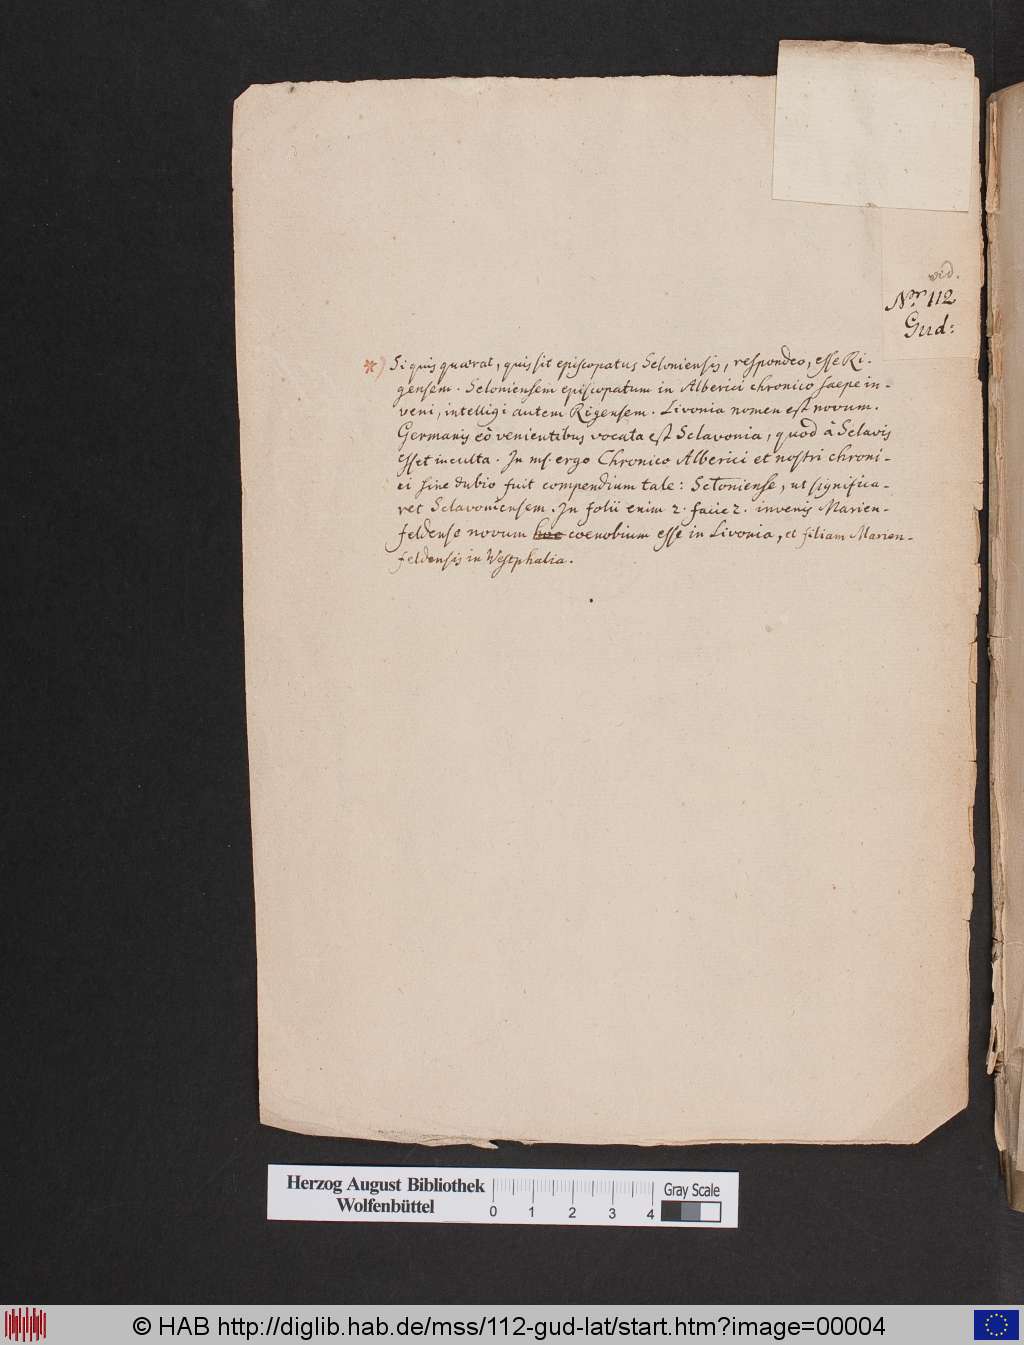 vid.
Nr. 112
Gud:
*) Si quis quærat, quis sit episcopatus Seloniensis, respondeo, esse Ri-
gensem. Seloniensem episcopatum in Alberici chronico saepe in-
veni, intelligi autem Rigensem. Livonia nomen est novum.
Germanis eò venientibus vocata est Sclavonia, quod â Sclavis
esset inculta. In ms. ergo Chronico Alberici et nostri chroni-
ci sine dubio fuit compendium tale: Scloniense, ut significa-
ret Sclavoniensem. In folii enim 2. facie 2. invenis Marien-
feldense novum hoc coenobium esse in Livonia, et filiam Marien-
feldensis in Westphalia.
Herzog August Bibliothek
Wolfenbüttel
0 1 2 3 4
Gray Scale
© HAB http://diglib.hab.de/mss/112-gud-lat/start.htm?image=00004